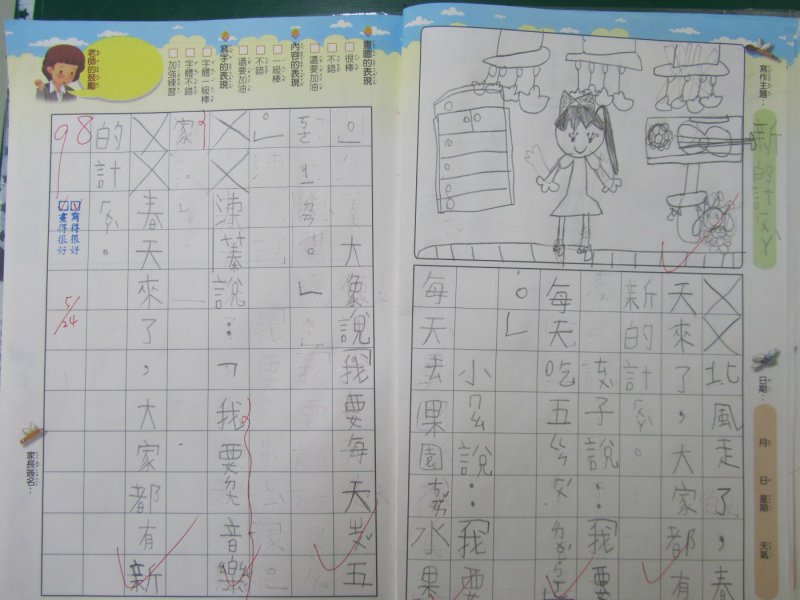 寫作主題：
新的計ㄏㄨㄚ
日期： 月 日 星期 天氣
北風走了，春
天來了，大家都有
新的計
孩子說：「我要
每天吃五
。」
小ㄠ說：「我要
每天去果園 水果
畫圖的表現
很棒
不錯
還要加油
內容的表現
一級棒
不錯
還要加油
寫字的表現
字體一級棒
字體不錯
加強練習
老師的鼓勵
。」
大象說「我要每天 五
。」
說：「我要 音樂
家。」
春天來了，大家都有新
的計 。
98
寫得很好
畫得很好
5/24
家長簽名：